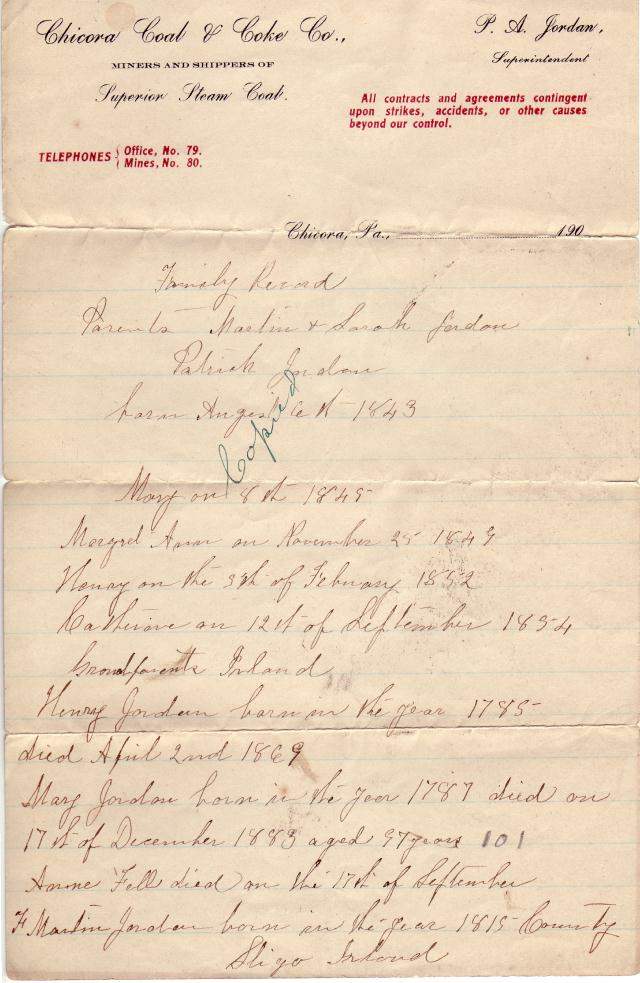 Chicora Coal & Coke Co.,
MINERS AND SHIPPERS OF
Superior Steam Coal.
P. A. Jordan,
Superintendent
All contracts and agreements contingent
upon strikes, accidents, or other causes
beyond our control.
TELEPHONES { Office, No. 79.
Mines, No. 80.
Chicora, Pa., 190
Family Record
Parents Martin + Sarah Jordan
Patrick Jordan
born Augest 6th 1843
Copied
Mary on 8th 1845
Margret Ann on November 25 1849
Henry on the 3th of February 1852
Catherine on 12th of September 1854
Grandparents Irland
Henry Jordan born in the year 1785
died April 2nd 1869
Mary Jordan born in the year 1787 died on
17th of December 1883 aged 97 years 101
Anne Fell died on the 17th of September
F Martin Jordan born in the year 1815 County
Sligo Irland